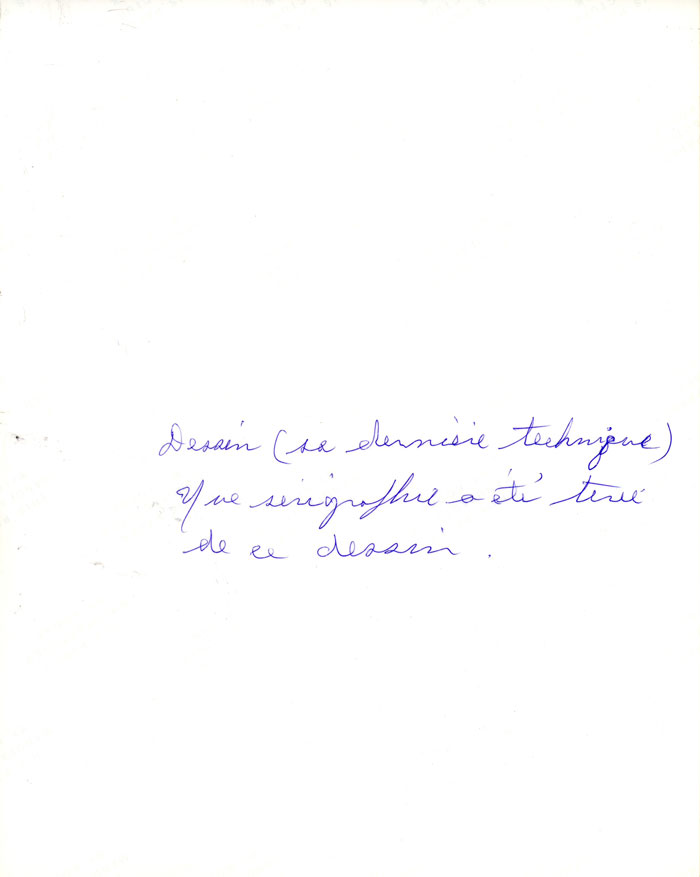 Dessin (sa dernière technique)
Une sérigraphie a été tirée
de ce dessin.